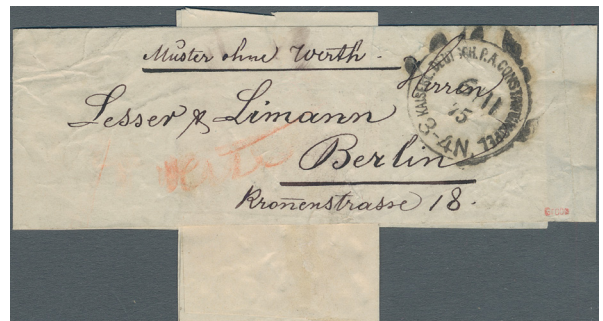 Muster ohne Werth.
Herren
Lesser & Limann
Berlin
Kronenstrasse 18.
KAISERL. DEUTSCH. P.A. CONSTANTINOPEL
6/11
75
3-4N.